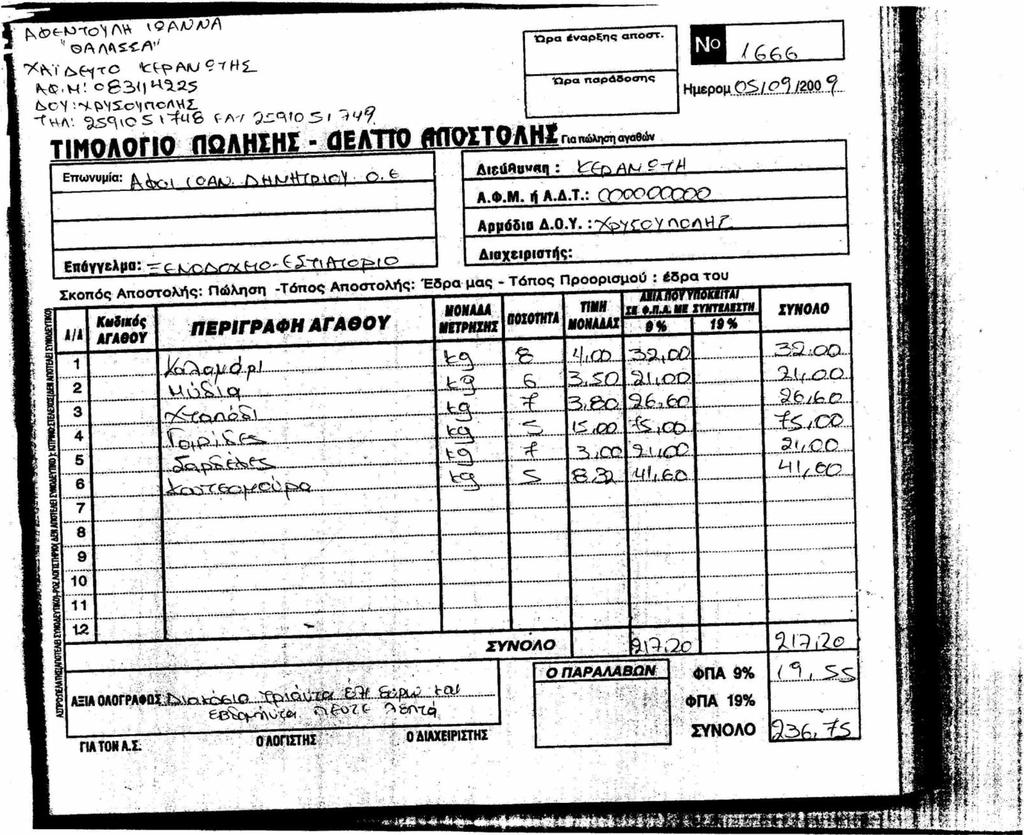 ΑΦΕΝΤΟΥΛΗ ΙΩΑΝΝΑ
"ΘΑΛΑΣΣΑ"
ΧΑΪΔΕΥΤΟ ΚΕΡΑΜΩΤΗΣ
Α.Φ.Μ: 083114225
ΔΟΥ: ΧΡΥΣΟΥΠΟΛΗΣ
ΤΗΛ: 25910 51748 FAX 25910 51 749
Ώρα έναρξης αποστ.
Ώρα παράδοσης
Νο 1666
Ημερομ 05/09/2009
ΤΙΜΟΛΟΓΙΟ ΠΩΛΗΣΗΣ - ΔΕΛΤΙΟ ΑΠΟΣΤΟΛΗΣ Για πώληση αγαθών
Επωνυμία: ΑΦΟΙ ΙΩΑΝ. ΔΗΜΗΤΡΙΟΥ Ο.Ε
Επάγγελμα: ΞΕΝΟΔΟΧΕΙΟ-ΕΣΤΙΑΤΟΡΙΟ
Διεύθυνση : ΚΕΡΑΜΩΤΗ
Α.Φ.Μ. ή Α.Δ.Τ.: 000000000
Αρμόδια Δ.Ο.Υ. : ΧΡΥΣΟΥΠΟΛΗΣ
Διαχειριστής:
Σκοπός Αποστολής: Πώληση -Τόπος Αποστολής: Έδρα μας - Τόπος Προορισμού : έδρα του
Α/Α Κωδικός ΑΓΑΘΟΥ ΠΕΡΙΓΡΑΦΗ ΑΓΑΘΟΥ ΜΟΝΑΔΑ ΜΕΤΡΗΣΗΣ ΠΟΣΟΤΗΤΑ ΤΙΜΗ ΜΟΝΑΔΑΣ ΑΞΙΑ ΠΟΥ ΥΠΟΚΕΙΤΑΙ ΣΕ Φ.Π.Α. ΜΕ ΣΥΝΤΕΛΕΣΤΗ 9% 19% ΣΥΝΟΛΟ
1 Καλαμάρι kg 8 4,00 32,00 32,00
2 Μύδια kg 6 3,50 21,00 21,00
3 Χταπόδι kg 7 3,80 26,60 26,60
4 Γαρίδες kg 5 15,00 75,00 75,00
5 Σαρδέλες kg 7 3,00 21,00 21,00
6 Κουτσομούρα kg 5 8,32 41,60 41,60
7
8
9
10
11
12
ΣΥΝΟΛΟ 217,20 217,20
ΑΞΙΑ ΟΛΟΓΡΑΦΩΣ Διακόσια Τριάντα έξι Ευρώ και
Εβδομήντα πέντε λεπτά
Ο ΠΑΡΑΛΑΒΩΝ
ΦΠΑ 9% 19,55
ΦΠΑ 19%
ΣΥΝΟΛΟ 236,75
ΓΙΑ ΤΟΝ Α.Σ. Ο ΛΟΓΙΣΤΗΣ Ο ΔΙΑΧΕΙΡΙΣΤΗΣ